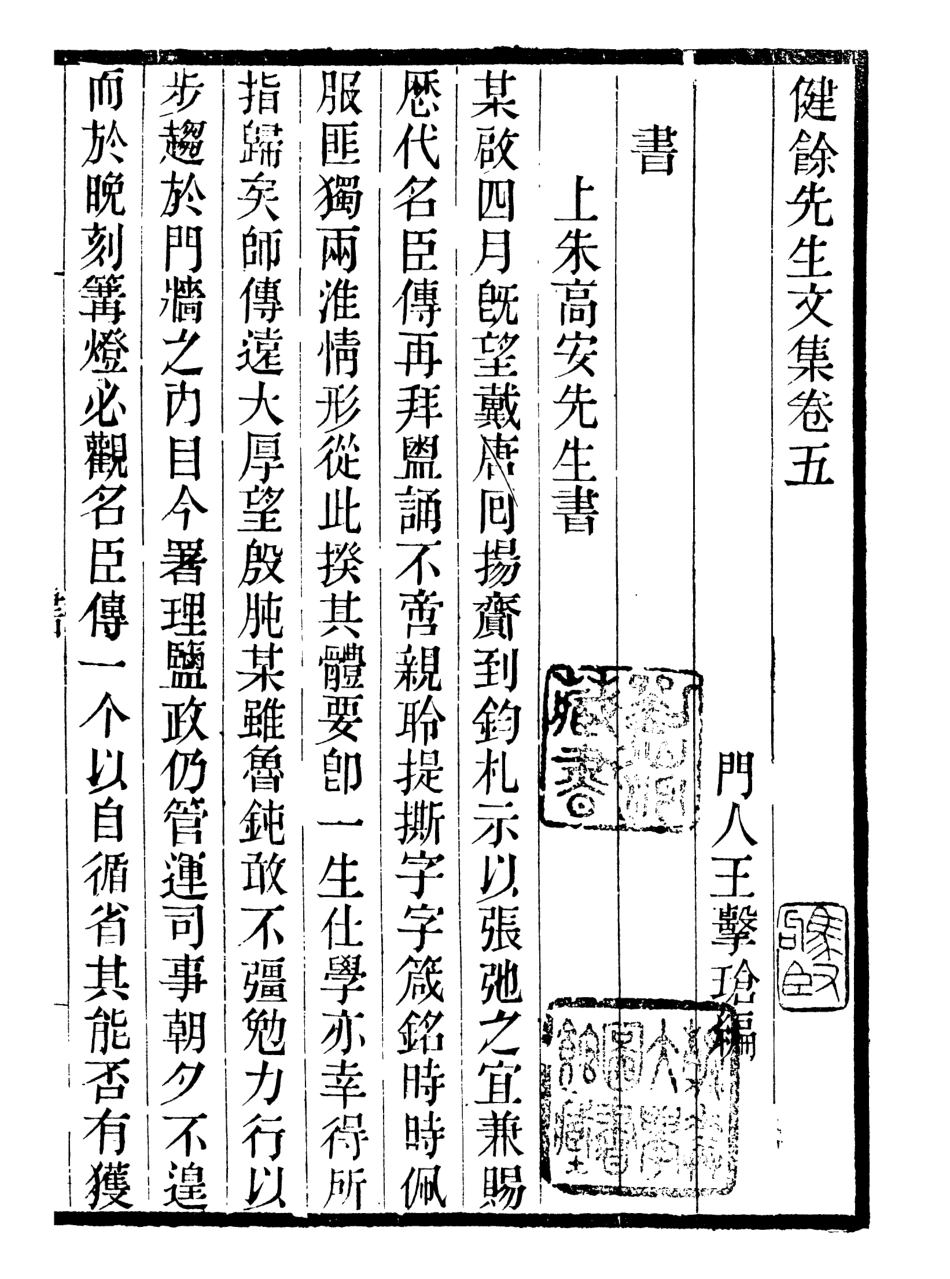 健餘先生文集卷五
門人王擊瑲編
書
上朱高安先生書
某啟四月旣望戴唐囘揚齎到鈞札示以張弛之宜兼賜
歷代名臣傳再拜盥誦不啻親聆提撕字字箴銘時時佩
服匪獨兩淮情形從此揆其體要卽一生仕學亦幸得所
指歸矣師傳遠大厚望殷肫某雖魯鈍敢不彊勉力行以
步趨於門牆之內目今署理鹽政仍管運司事朝夕不遑
而於晚刻篝燈必觀名臣傳一个以自循省其能否有獲